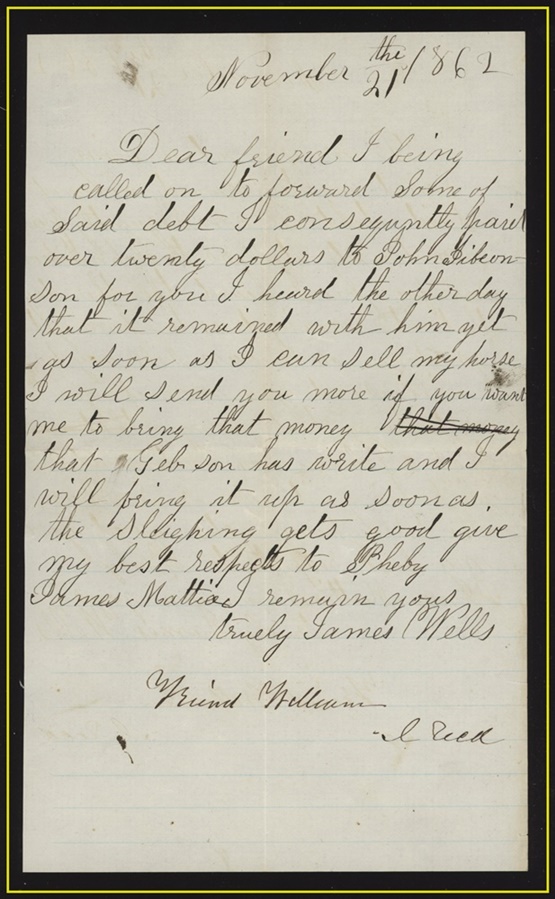 November 21 the / 1862
Dear friend I being
called on to forward Some of
Said debt I consequntly paid
over twenty dollars to John Gibson
son for you I heard the other day
that it remained with him yet
as soon as I can sell my horse
I will send you more if you want
me to bring that money that money
that Gebson has write and I
will bring it up as soon as
the Sleighing gets good give
my best respects to Pheby
James Mattia I remain yous
truely James Wells
Friend William